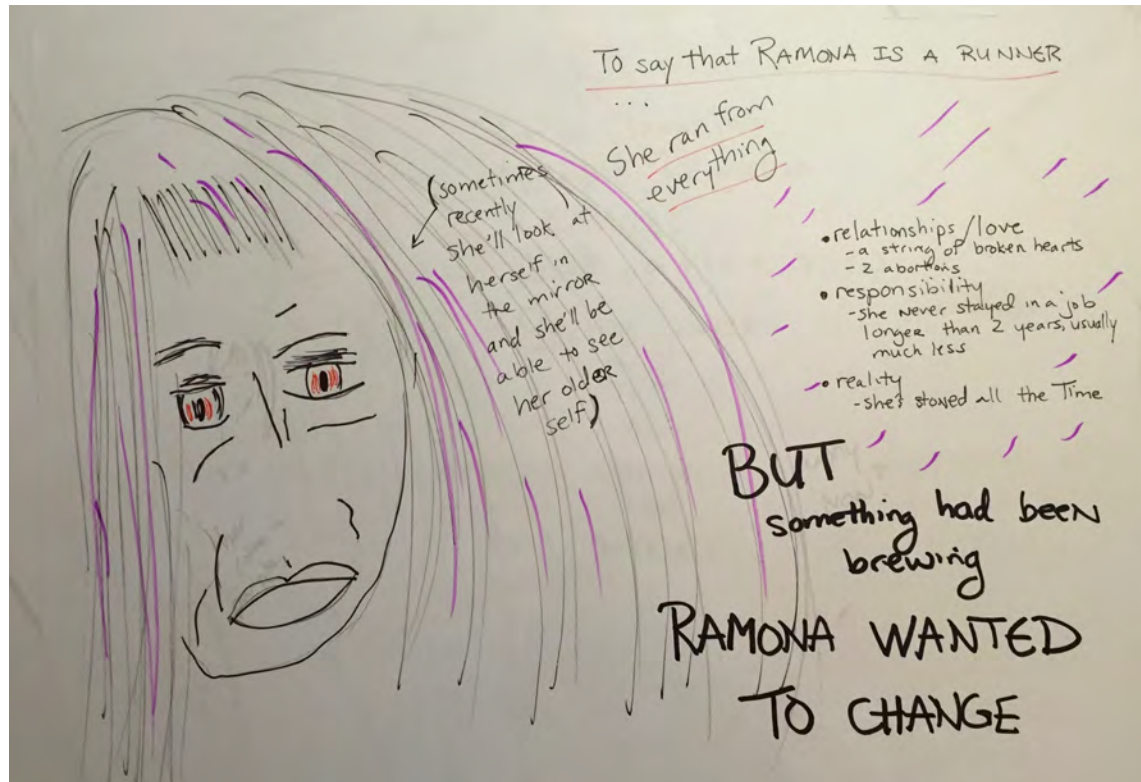 To say that RAMONA IS A RUNNER
...
She ran from
everything
(sometimes
recently
she'll look at
herself in
the mirror
and she'll be
able to see
her older
self)
• relationships/love
- a string of broken hearts
- 2 abortions
• responsibility
- she never stayed in a job
longer than 2 years, usually
much less
• reality
- she's stoned all the Time
BUT
something had been
brewing
RAMONA WANTED
TO CHANGE